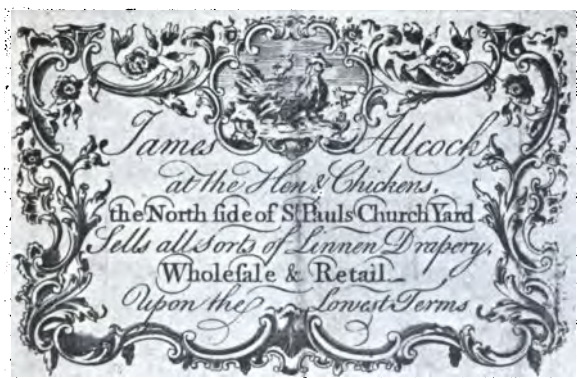 James Allcock
at the Hen & Chickens,
the North ſide of St. Pauls Church Yard
Sells all sorts of Linnen Drapery,
Wholeſale & Retail
Upon the Lowest Terms